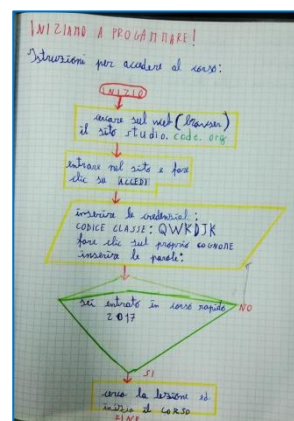 INIZIAMO A PROGAMMARE!
Istruzioni per accedere al corso:
INIZIO
cercare sul web (browser)
il sito studio.code.org
entrare nel sito e fare
clic su ACCEDI
inserire le credenziali:
CODICE CLASSE: QWKDJK
fare clic sul proprio COGNOME
inserire le parole:
sei entrato in corso rapido
2017
NO
SI
cerca la lezione ed
inizia il CORSO
FINE